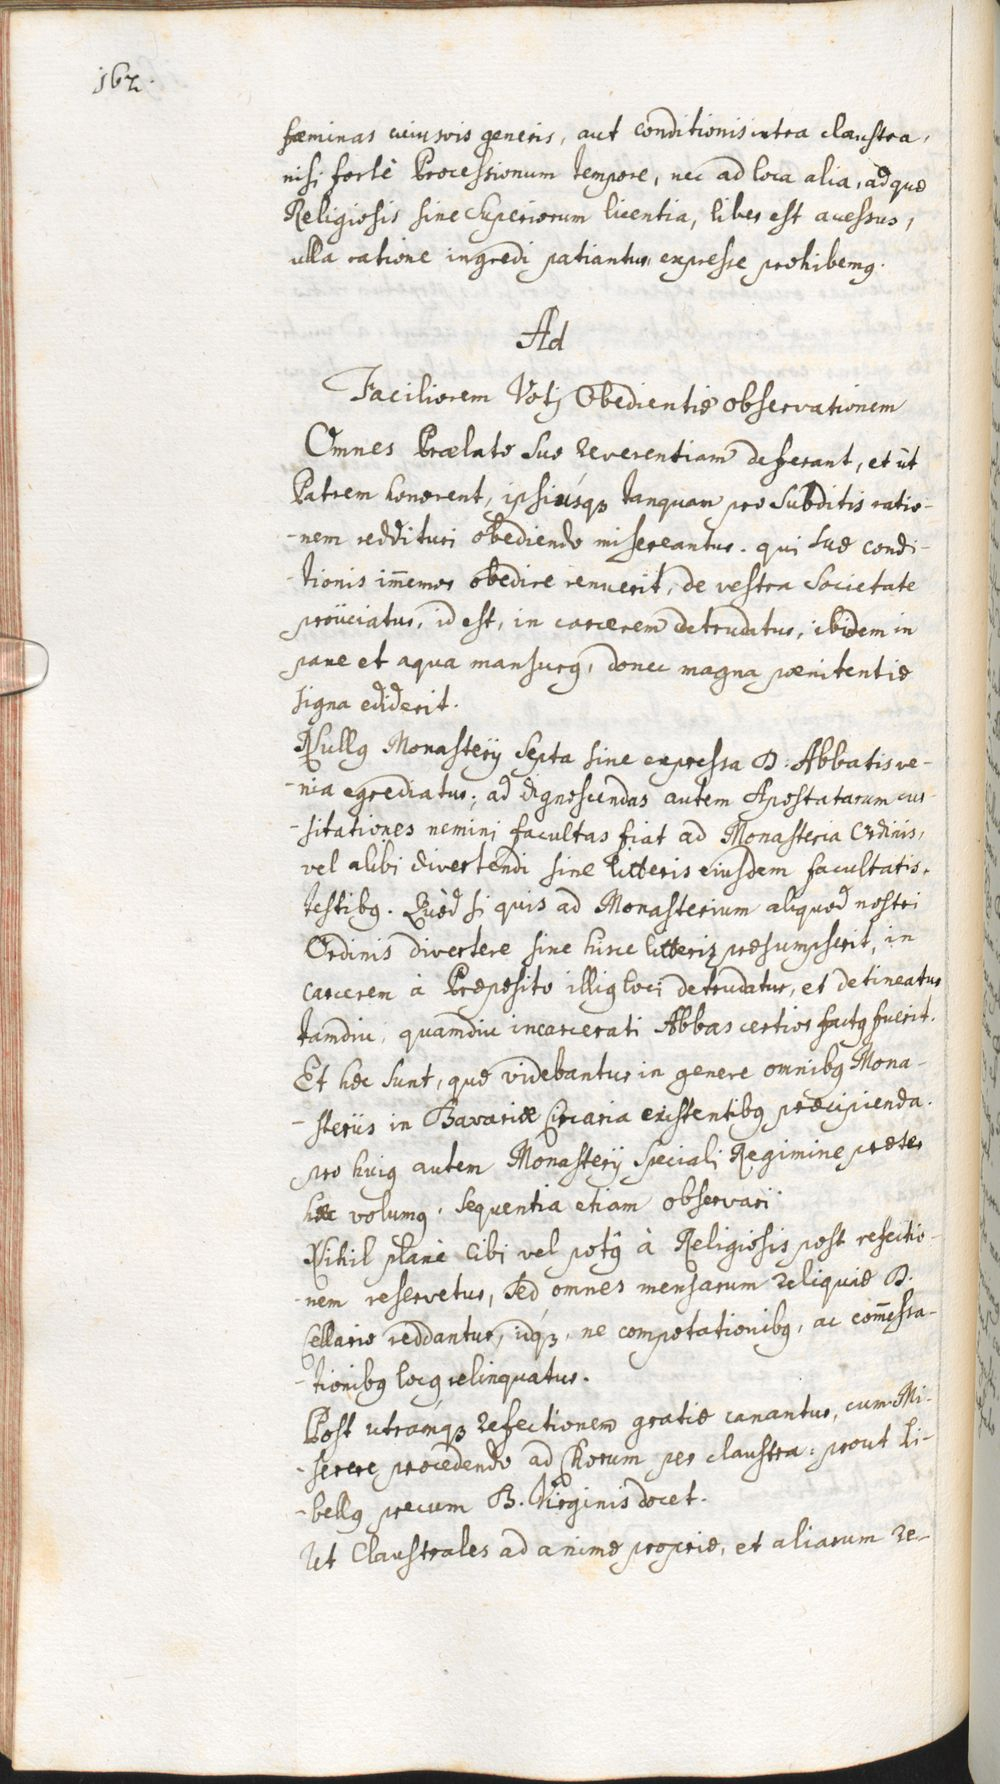 162.
fæminas cuiusvis generis, aut conditionis intra claustra,
nisi fortè Processionum tempore, nec ad loca alia, ad quæ
Religiosis sine Superiorum licentia, liber est accessus,
ulla ratione ingredi patiantur expresse prohibemꝰ.
Ad
Faciliorem Votj Obedientiæ observationem
Omnes Prælato suo reverentiam deferant, et ùt
Patrem honorent, ipsiúsqꝫ tanquam pro subditis ratio-
-nem reddituri obediendo misereantur. qui suæ condi-
-tionis im̄emor obedire renuerit, de vestra societate
proijciatur, id est, in carcerem detrudatur, ibidem in
pane et aqua mansurꝰ, donec magna pœnitentiæ
signa ediderit.
Nullꝰ Monasterÿ Septa sine expressa D: Abbatis ve-
-nia egrediatur; ad dignoscendas autem Apostatarum cur-
-sitationes nemini facultas fiat ad Monasteria Ordinis,
vel alibi divertendi sine litteris eiusdem facultatis,
testibꝰ. Quòd si quis ad Monasterium aliquod nostri
Ordinis divertere sine hisce litteris præsumpserit, in
carcerem à Præposito illiꝰ loci detrudatur, et detineatur
tamdiu, quamdiu incarcerati Abbas certior factꝰ fuerit.
Et hæc sunt, quæ videbantur in genere omnibꝰ Mona-
-sterijs in Bavariæ Circaria existentibꝰ præcipienda.
pro huiꝰ autem Monasterÿ speciali Regimine præter
hæc volumꝰ, sequentia etiam observari:
Nihil planè cibi vel potꝰ à Religiosis post refectio-
-nem reservetur, sed omnes mensarum reliquiæ D.
Cellario reddantur, idqꝫ, ne compotationibꝰ, ac com̄essa-
-tionibꝰ locꝰ relinquatur.
Post utramqꝫ refectionem gratiæ canantur, cum Mi-
-serere procedendo ad Chorum per claustra: prout li-
-bellꝰ precum B. Virginis docet.
Ut Claustrales ad animæ propriæ, et aliarum re-